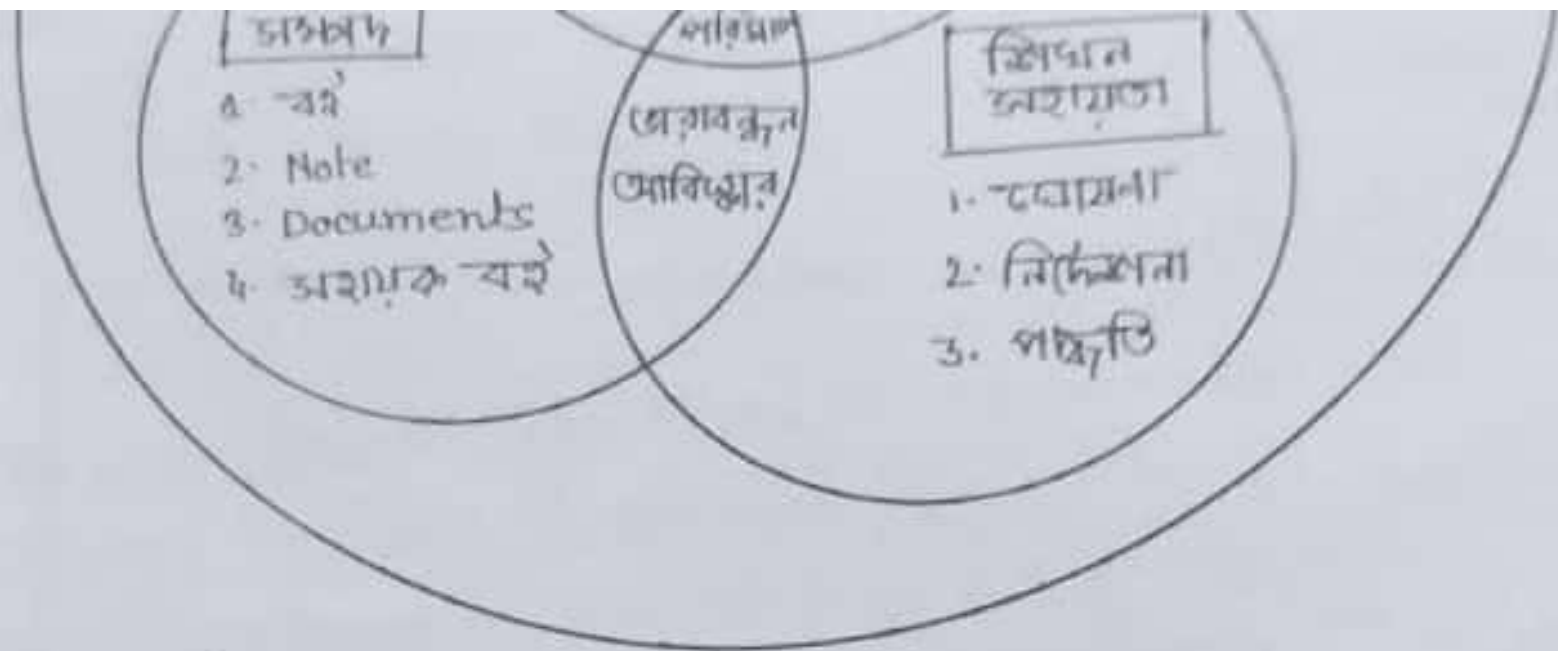 সম্পদ
1. বই
2. Note
3. Documents
4. সহায়ক বই
আবিষ্কার
শিখন
সহায়তা
1. ঘোষনা
2. নির্দেশনা
3. পদ্ধতি